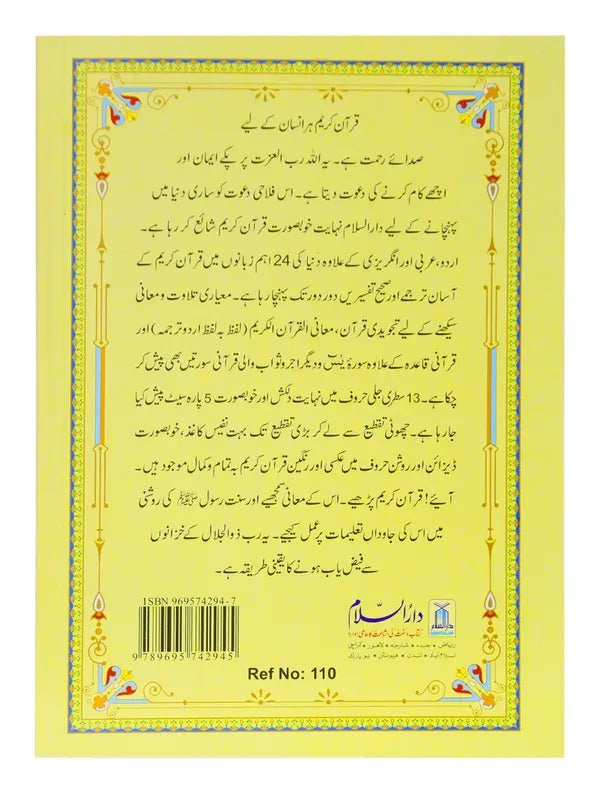 قرآن کریم ہر انسان کے لیے
صدائے رحمت ہے۔ یہ اللہ رب العزت پر پکے ایمان اور
اچھے کام کرنے کی دعوت دیتا ہے۔ اس فلاحی دعوت کو ساری دنیا میں
پہنچانے کے لیے دارالسلام نہایت خوبصورت قرآن کریم شائع کر رہا ہے۔
اردو، عربی اور انگریزی کے علاوہ دنیا کی 24 اہم زبانوں میں قرآن کریم کے
آسان ترجمے اور صحیح تفسیریں دور دور تک پہنچا رہا ہے۔ معیاری تلاوت و معانی
سیکھنے کے لیے تجویدی قرآن، معانی القرآن الکریم (لفظ بہ لفظ اردو ترجمہ) اور
قرآنی قاعدہ کے علاوہ سورۂ یٰسٓ و دیگر اجر و ثواب والی قرآنی سورتیں بھی پیش کر
چکا ہے۔ 13 سطری جلی حروف میں نہایت دلکش اور خوبصورت 5 پارہ سیٹ پیش کیا
جا رہا ہے۔ چھوٹی تقطیع سے لے کر بڑی تقطیع تک بہت نفیس کاغذ، خوبصورت
ڈیزائن اور روشن حروف میں عکسی اور رنگین قرآن کریم بہ تمام و کمال موجود ہیں۔
آیئے! قرآن کریم پڑھیے۔ اس کے معانی سمجھیے اور سنت رسول ﷺ کی روشنی
میں اس کی جاوداں تعلیمات پر عمل کیجیے۔ یہ رب ذوالجلال کے خزانوں
سے فیض یاب ہونے کا یقینی طریقہ ہے۔
ISBN 969574294-7
9 789695 742945
دارالسلام
کتاب و سنت کی اشاعت کا عالمی ادارہ
ریاض • جدہ • شارجہ • لاہور • کراچی
اسلام آباد • لندن • ہیوسٹن • نیو یارک
دارالسلام
DARUSSALAM
Ref No: 110